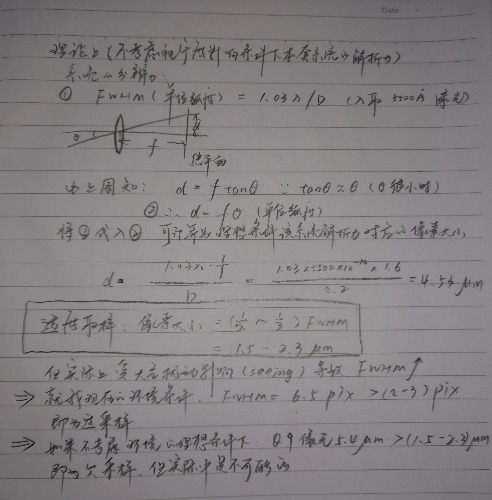 Date.
理论上(不考虑视宁度影响的条件下本套系统的解析力)
系统的分辨力:
① FWHM (单位弧度) = 1.03λ/D (入取 5500Å 波长)
θ f d
像平面
由上图知: d = f tanθ ∵ tanθ ≈ θ (θ很小时)
② ∴ d = fθ (单位弧度)
将①代入② 可计算出理想条件该系统解析力对应的像素大小
d = 1.03λ·f / D = 1.03×5500×10⁻¹⁰×1.6 / 0.2 = 4.53 μm
适性取样: 像素大小 = (1/2 ~ 1/3) FWHM
= 1.5 - 2.3 μm
但实际上受大气扰动影响 (seeing) 导致 FWHM↑
⇒ 就我现在的环境条件. FWHM = 6.5 pix > (2-3) pix
即为过采样
⇒ 如果不考虑环境的理想条件下. 09像元 5.4μm > (1.5-2.3)μm
即为欠采样. 但实际中是不可能的